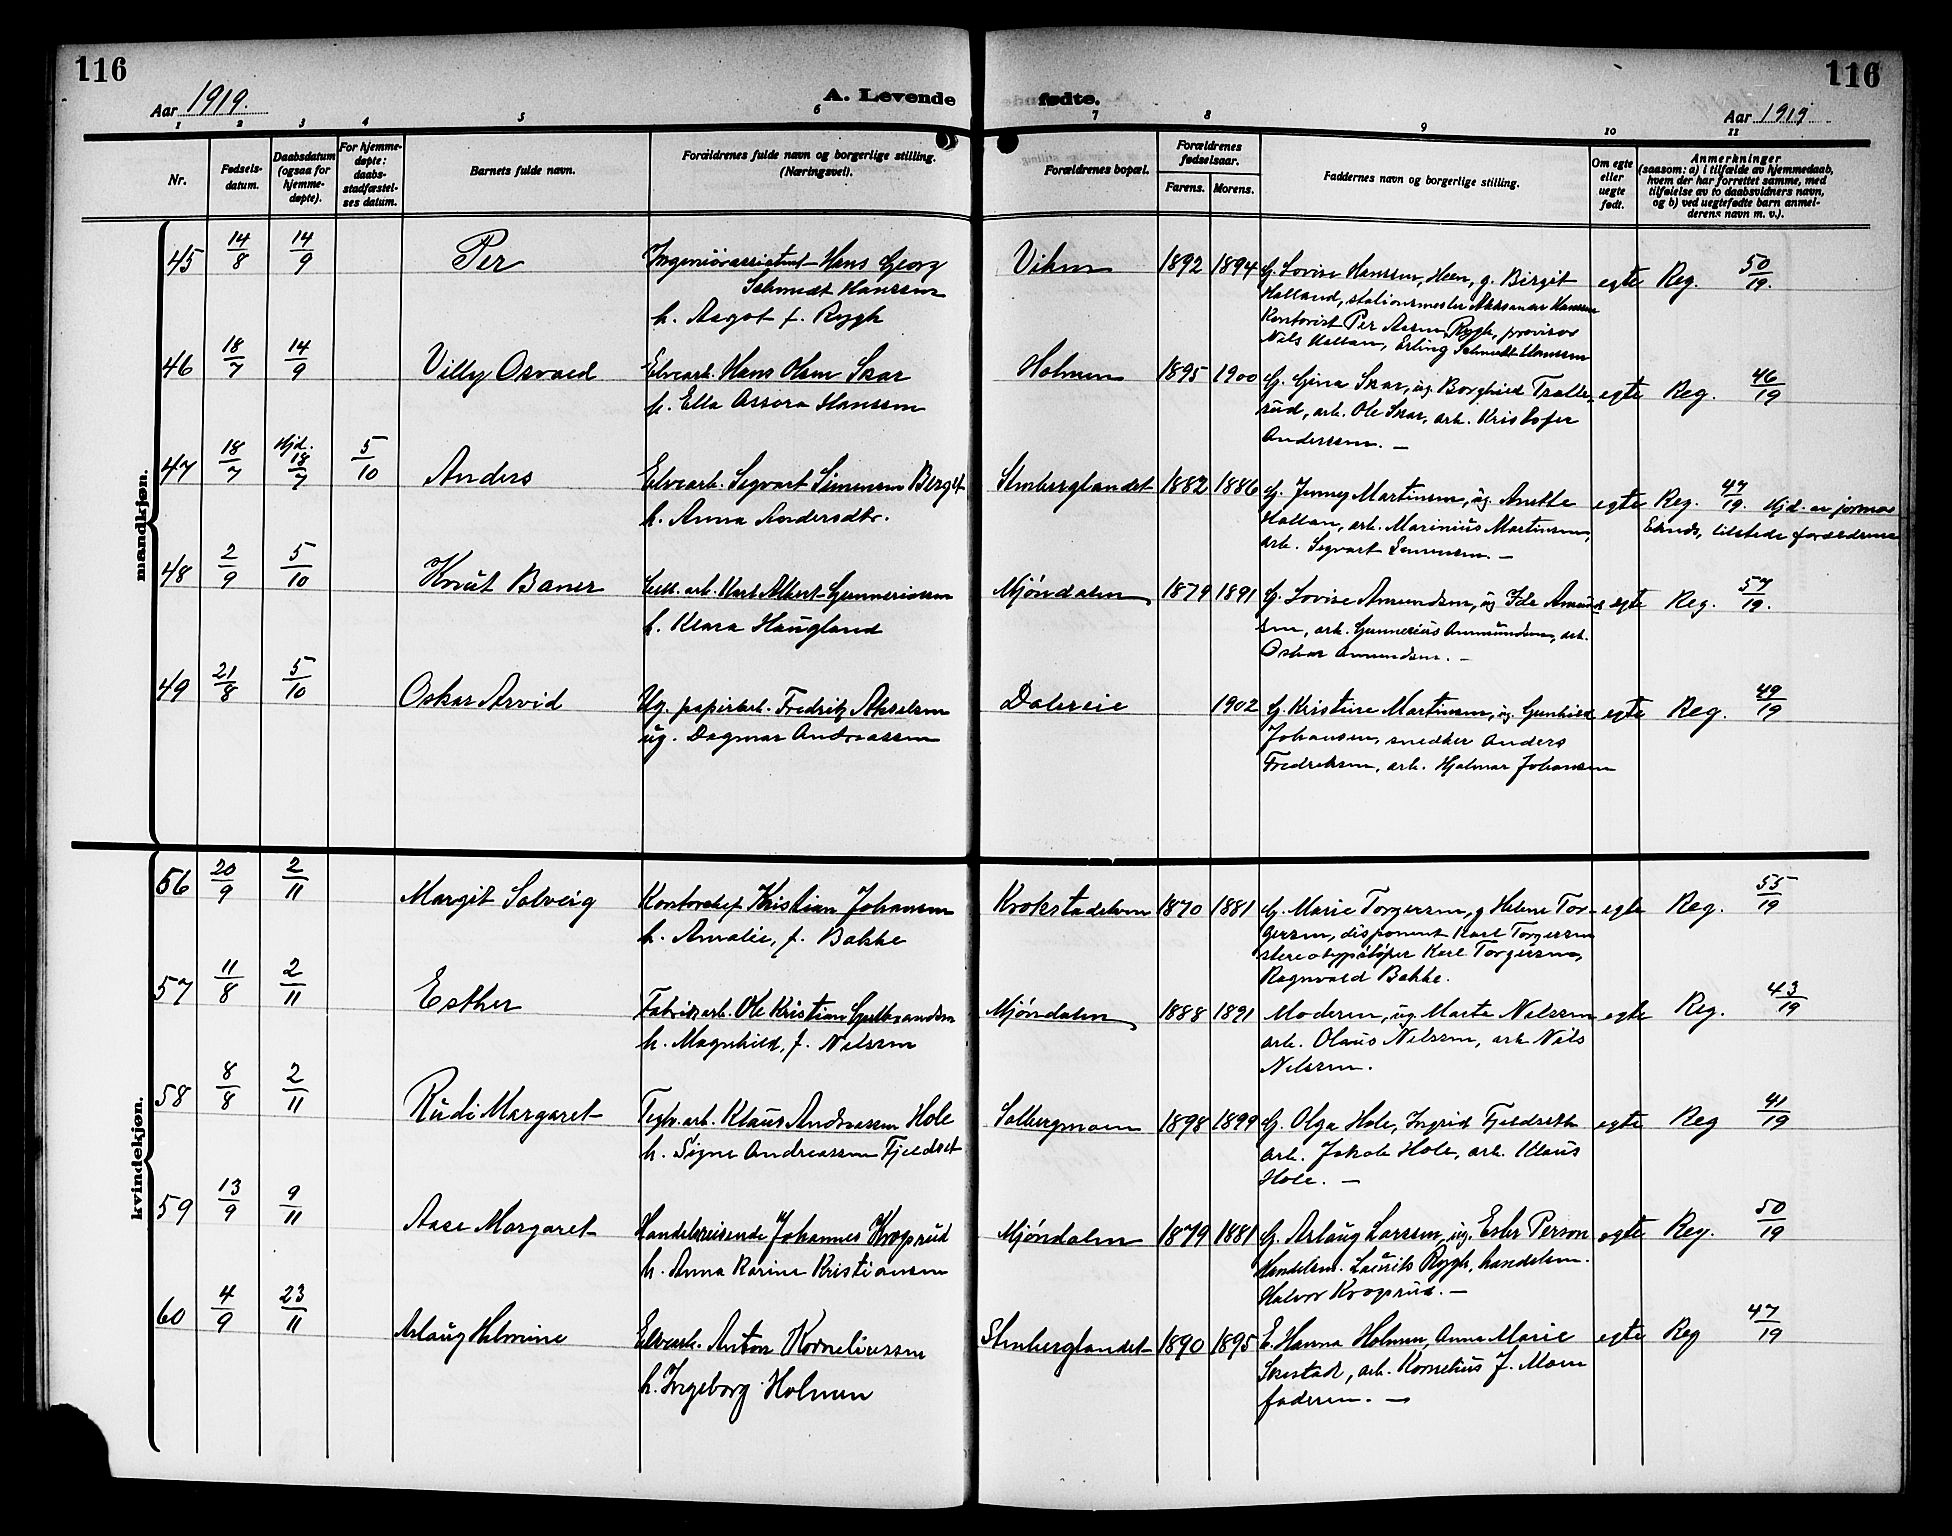 116
116
Aar 1919.
A. Levende
fødte.
Aar 1919
1 2 3 4 5 6 7 8 9 10 11
Nr.
Fødsels-
datum.
Daabsdatum
(ogsaa for
hjemme-
døpte).
For hjemme-
døpte:
daabs-
stadfæstel-
ses datum.
Barnets fulde navn.
Forældrenes fulde navn og borgerlige stilling.
(Næringsvei).
Forældrenes bopæl.
Forældrenes
fødselsaar.
Farens.
Morens.
Faddernes navn og borgerlige stilling.
Om egte
eller
uegte
født.
Anmerkninger
(saasom: a) i tilfælde av hjemmedaab,
hvem der har forrettet samme, med
tilføielse av to daabsvidners navn,
og b) ved uegtefødte barn anmel-
derens navn m. v.).
mandkjøn.
45 14/8 14/9 Per Ingeniørassistent Hans Georg Viken 1892 1894 G. Lovise Hanssen, Heen, g. Birgit egte Reg. 50/19.
Schmedt Hanssen Halland, stationsmester Hanssen
h. Aagot f. Rygh Kontorist Per Aasen Rygh, provisor
Nils Hallan, Erling Schmedt Hanssen
46 18/7 14/9 Villy Osvald Elvearb. Hans Olsen Skar Holmen 1895 1900 G. Gina Skar, ug. Borghild Tralle- egte Reg. 46/19
h. Ella Assora Hanssen rud, arb. Ole Skar, arb. Kristofer
Anderssen. —
47 18/7 Hjd. 18/7 5/10 Anders Elvearb. Sigvart Simensen Berget Stenberglandet 1882 1886 G. Jenny Martinsen, ug. Anette egte Reg. 47/19. Hjd. av jormor
h. Anna Andersdtr. Hallan, arb. Marinius Martinsen, tilstede forældrene
arb. Sigvart Simensen. —
48 2/9 5/10 Knut Baner Cell. arb. Karl Albert Gunneriussen Mjøndalen 1879 1891 G. Lovise Amundsen, ug Ida Amund- egte Reg. 57/19.
h. Klara Haugland sen, arb. Gunnerius Ammundsen, arb.
Oskar Amundsen. —
49 21/8 5/10 Oskar Arvid Ug. papirarb. Fredrik Akselsen Dalereie 1902 G. Kristine Martinsen, ug. Gunhild egte Reg. 49/19
ug. Dagmar Andreassen Johansen, snedker Anders
Fredriksen, arb. Hjalmar Johansen
kvindekjøn.
56 20/9 2/11 Margit Solveig Kontorchef Kristian Johansen Krokstadelven 1870 1881 G. Marie Torgersen, g Helene Tor- egte Reg. 55/19
h. Amalie, f. Bakke gersen, disponent Karl Torgersen
stereotypstøper Karl Torgersen,
Ragnvald Bakke.
57 11/8 2/11 Esther Fabrikarb. Ole Kristian Gulbrandsen Mjøndalen 1888 1891 Moderen, ug. Marta Nilssen egte Reg. 43/19
h. Magnhild, f. Nilssen arb. Olaus Nilssen, arb Nils
Nilssen.
58 8/8 2/11 Rudi Margaret Teglv. arb. Klaus Andreassen Hole Solbergmoen 1898 1899 G. Olga Hole, Ingrid Fjeldseth egte Reg 41/19
h. Signe Andreassen Fjeldset arb. Jakob Hole, arb. Klaus
Hole. —
59 13/9 9/11 Aase Margaret Handelsreisende Johannes Kroprud Mjøndalen 1879 1881 G. Aslaug Larssen, ug. Ester Person egte Reg. 50/19
h. Anna Karine Kristiansen Handelsm. Laurits Rygh, handelsm.
Halvor Kroprud. —
60 4/9 23/11 Aslaug Helmine Elvearb. Anton Korneliussen Stenberglandet 1890 1895 E. Hanna Holmen, Anna Marie egte Reg 47/19
h. Ingeborg Holmen arb. Kornelius J. Moen
faderen. —